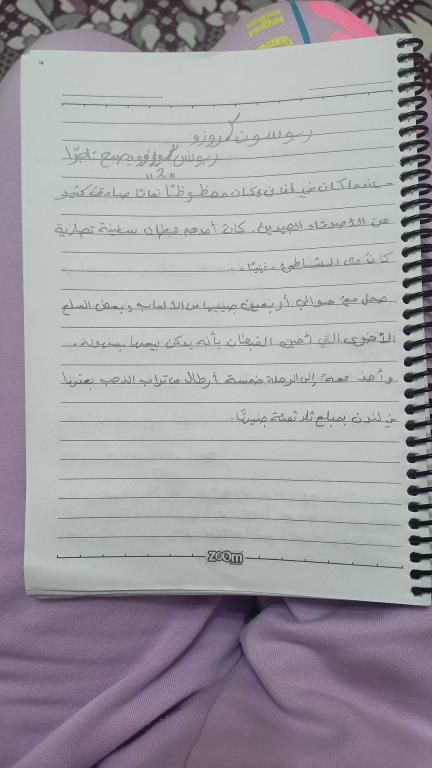 روبوسون كروزو
روبنس كروزو ويصبح تاجرًا
"2"
- عندما كان في لندن وكان محظوظًا تمامًا صادقت كثير
من الأصدقاء الجيدين. كان أحدهم قبطان سفينة تجارية
كانت على الشاطئ غينيا.
حمل معه حوالي أربعين جنيها من الألعاب وبعض السلع
الأخرى التي أخبره القبطان بأنه يمكن بيعها بسهولة.
وأخذ معه إلى الرحلة خمسة أرطال من تراب الذهب بعتها
في لندن بمبلغ ثلاثمئة جنيهًا.
zoom